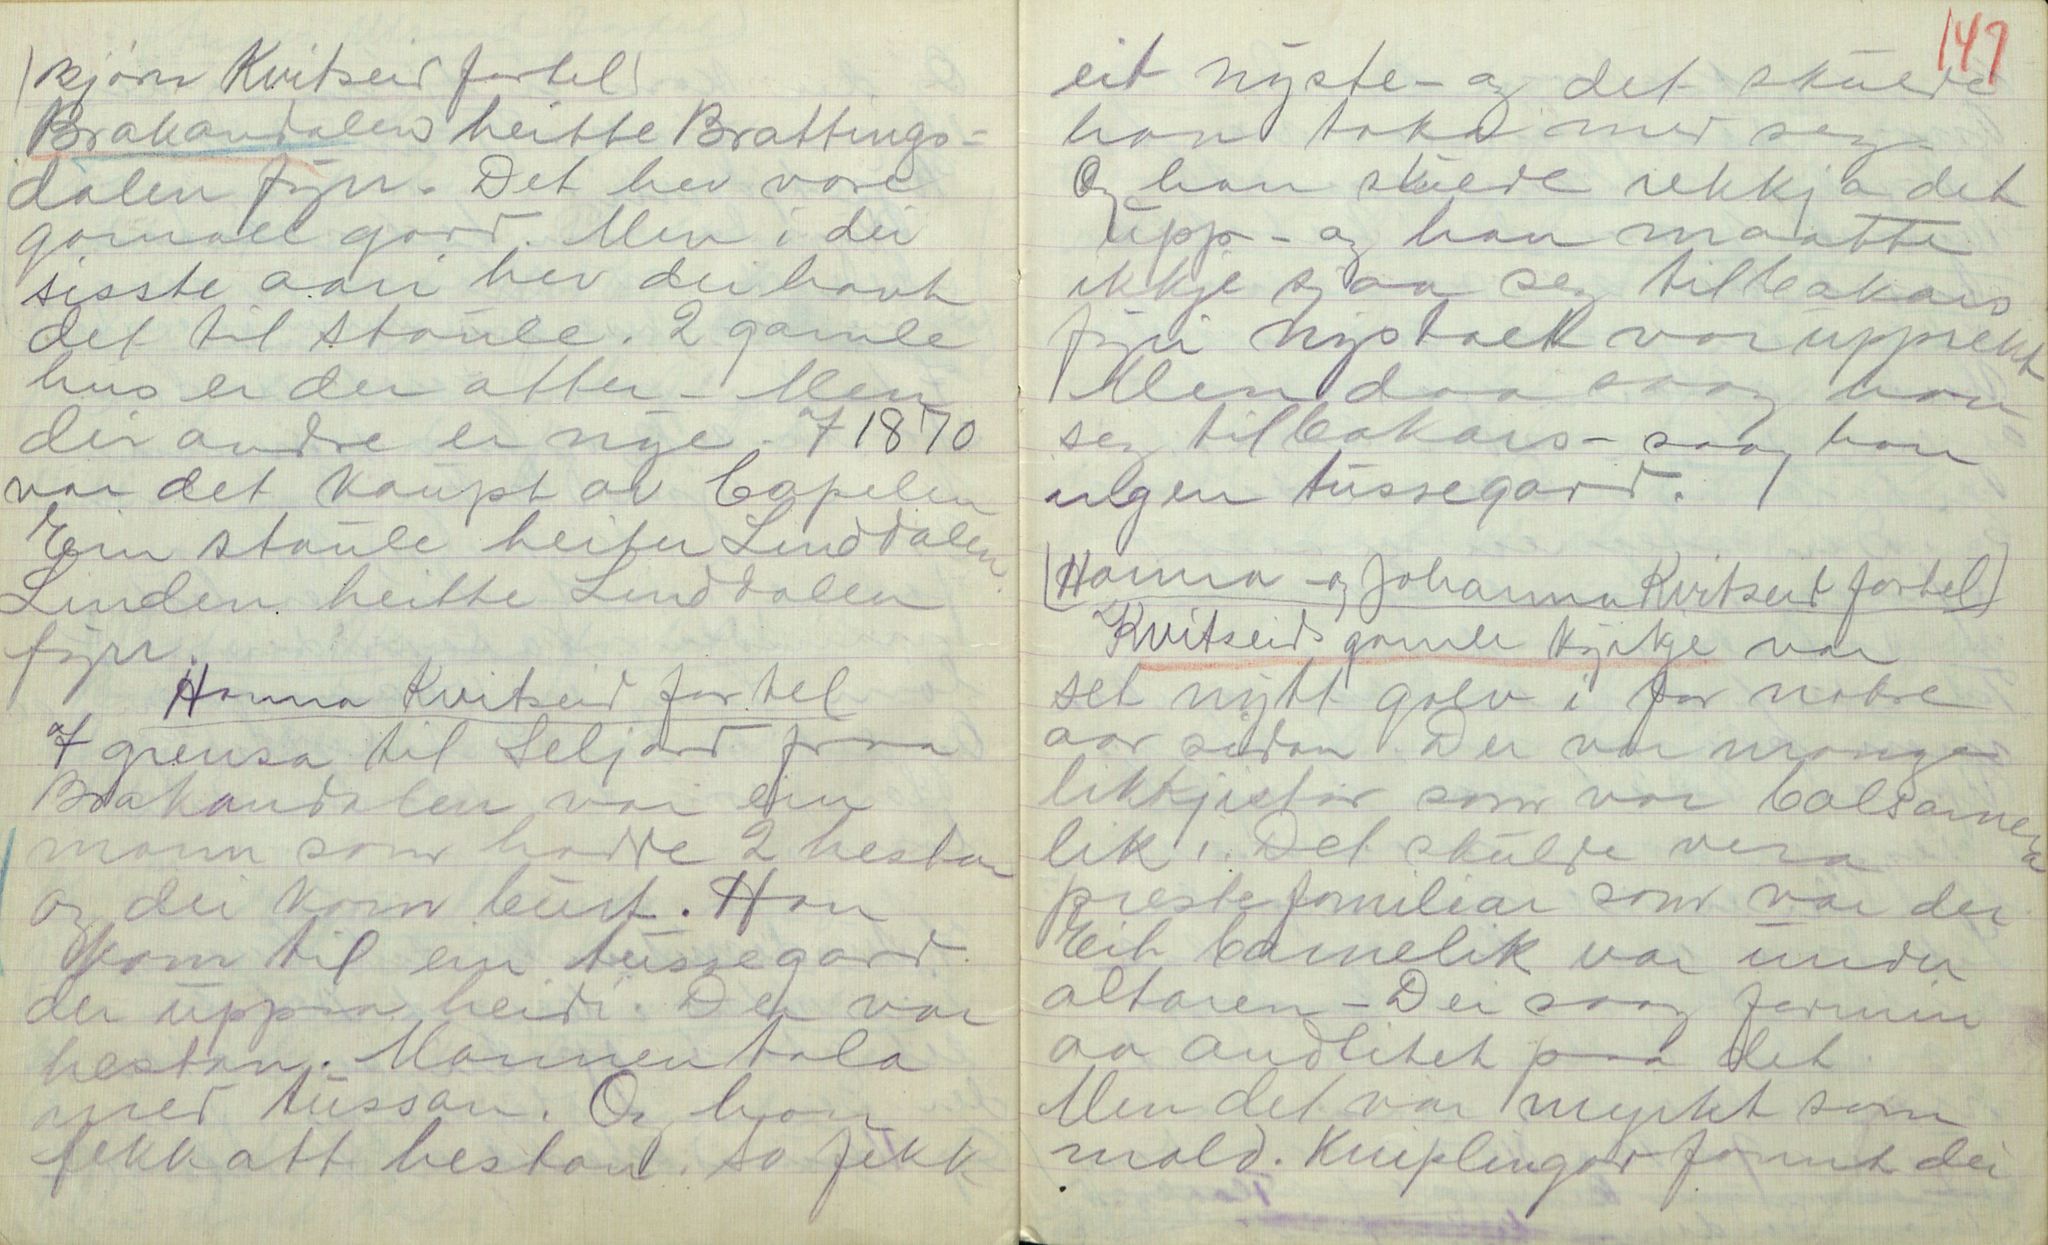 (Bjørn Kvitseid fortel)
Brakandalen heitte Brattings-
dalen fyrr. Det hev vore
gamall gard. Men i dei
sisste aari hev dei havt
det til staule. 2 gamle
hus er der atter - Men
dei andre er nye. I 1870
var det kaupt av Capelen
Ein staule heiter Linddalen.
Linden heitte Linddalen
fyrr.
Hanna Kvitseid fortel
I grensa til Seljord fraa
Brakandalen var ein
mann som hadde 2 hestar
og dei kom burt. Han
kom til ein tussegard
der uppaa heidi. Der var
hestan. Mannen tala
med tussan. Og han
fekk att hestan. So fekk
147
eit nyste - og det skulde
han taka med seg.
Og han skulde rekkja det
upp - og han maatte
ikkje sjaa seg tilbakars
fyri nystaet var upprekt
Men daa saag han
seg tilbakars - saag han
ingen tussegard.
(Hanna og Johanna Kvitseid fortel)
I Kvitseids gamle kyrkje var
set nytt golv i for nokre
aar sidan. Der var mange
likkjistor som var balsamera
lik i. Det skulde vera
prestefamiliar som var der
Eit barnelik var under
altaren - Dei saag formin
av andlitet paa det
Men det var myrkt som
mold. Kniplingar fannt dei